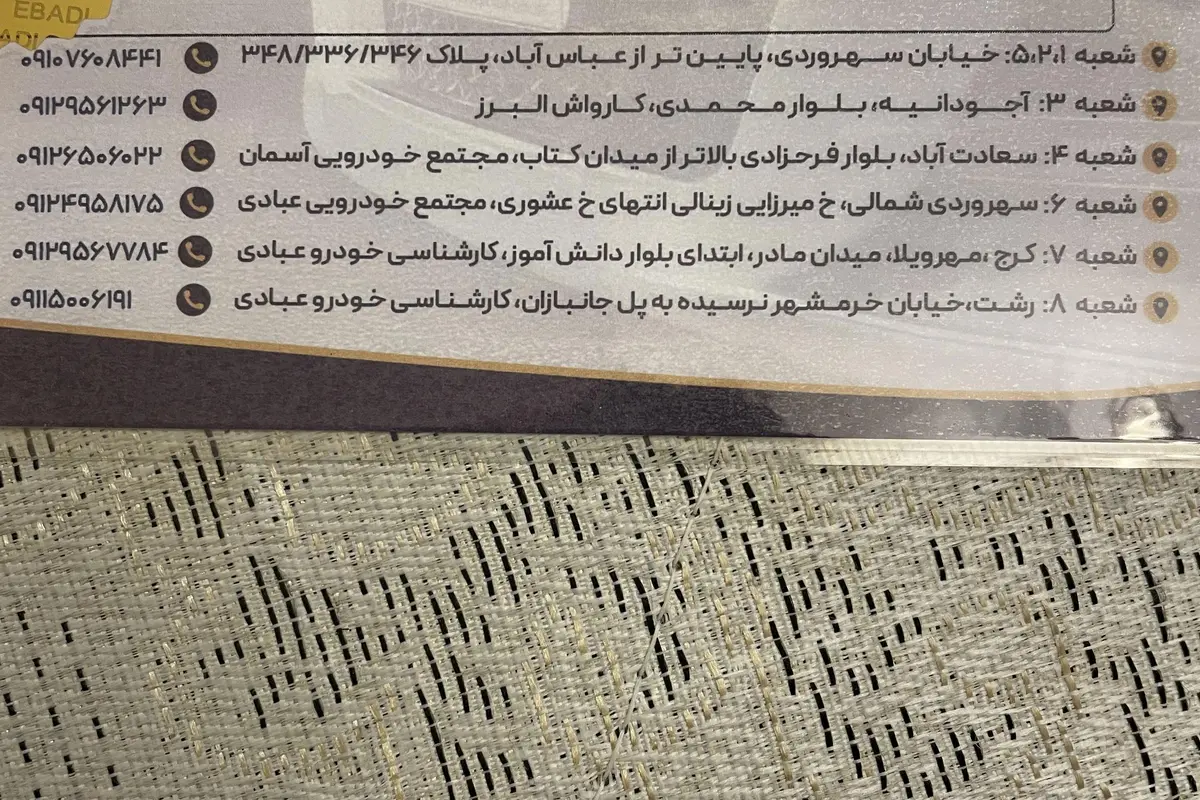 EBADI
ADI
شعبه ۵،۲،۱: خیابان سهروردی، پایین تر از عباس آباد، پلاک ۳۴۸/۳۳۶/۳۴۶ ۰۹۱۰۷۶۰۸۴۴۱
شعبه ۳: آجودانیه، بلوار محمدی، کارواش البرز ۰۹۱۲۹۵۶۱۲۶۳
شعبه ۴: سعادت آباد، بلوار فرحزادی بالاتر از میدان کتاب، مجتمع خودرویی آسمان ۰۹۱۲۶۵۰۶۰۲۲
شعبه ۶: سهروردی شمالی، خ میرزایی زینالی انتهای خ عشوری، مجتمع خودرویی عبادی ۰۹۱۲۴۹۵۸۱۷۵
شعبه ۷: کرج ،مهرویلا، میدان مادر، ابتدای بلوار دانش آموز، کارشناسی خودرو عبادی ۰۹۱۲۹۵۶۷۷۸۴
شعبه ۸: رشت،خیابان خرمشهر نرسیده به پل جانبازان، کارشناسی خودرو عبادی ۰۹۱۱۵۰۰۶۱۹۱